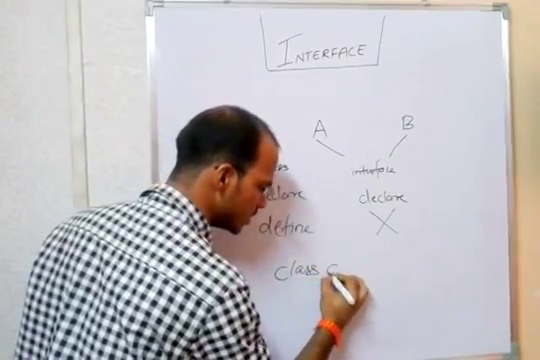 INTERFACE
A B
interface
declare
define
class C